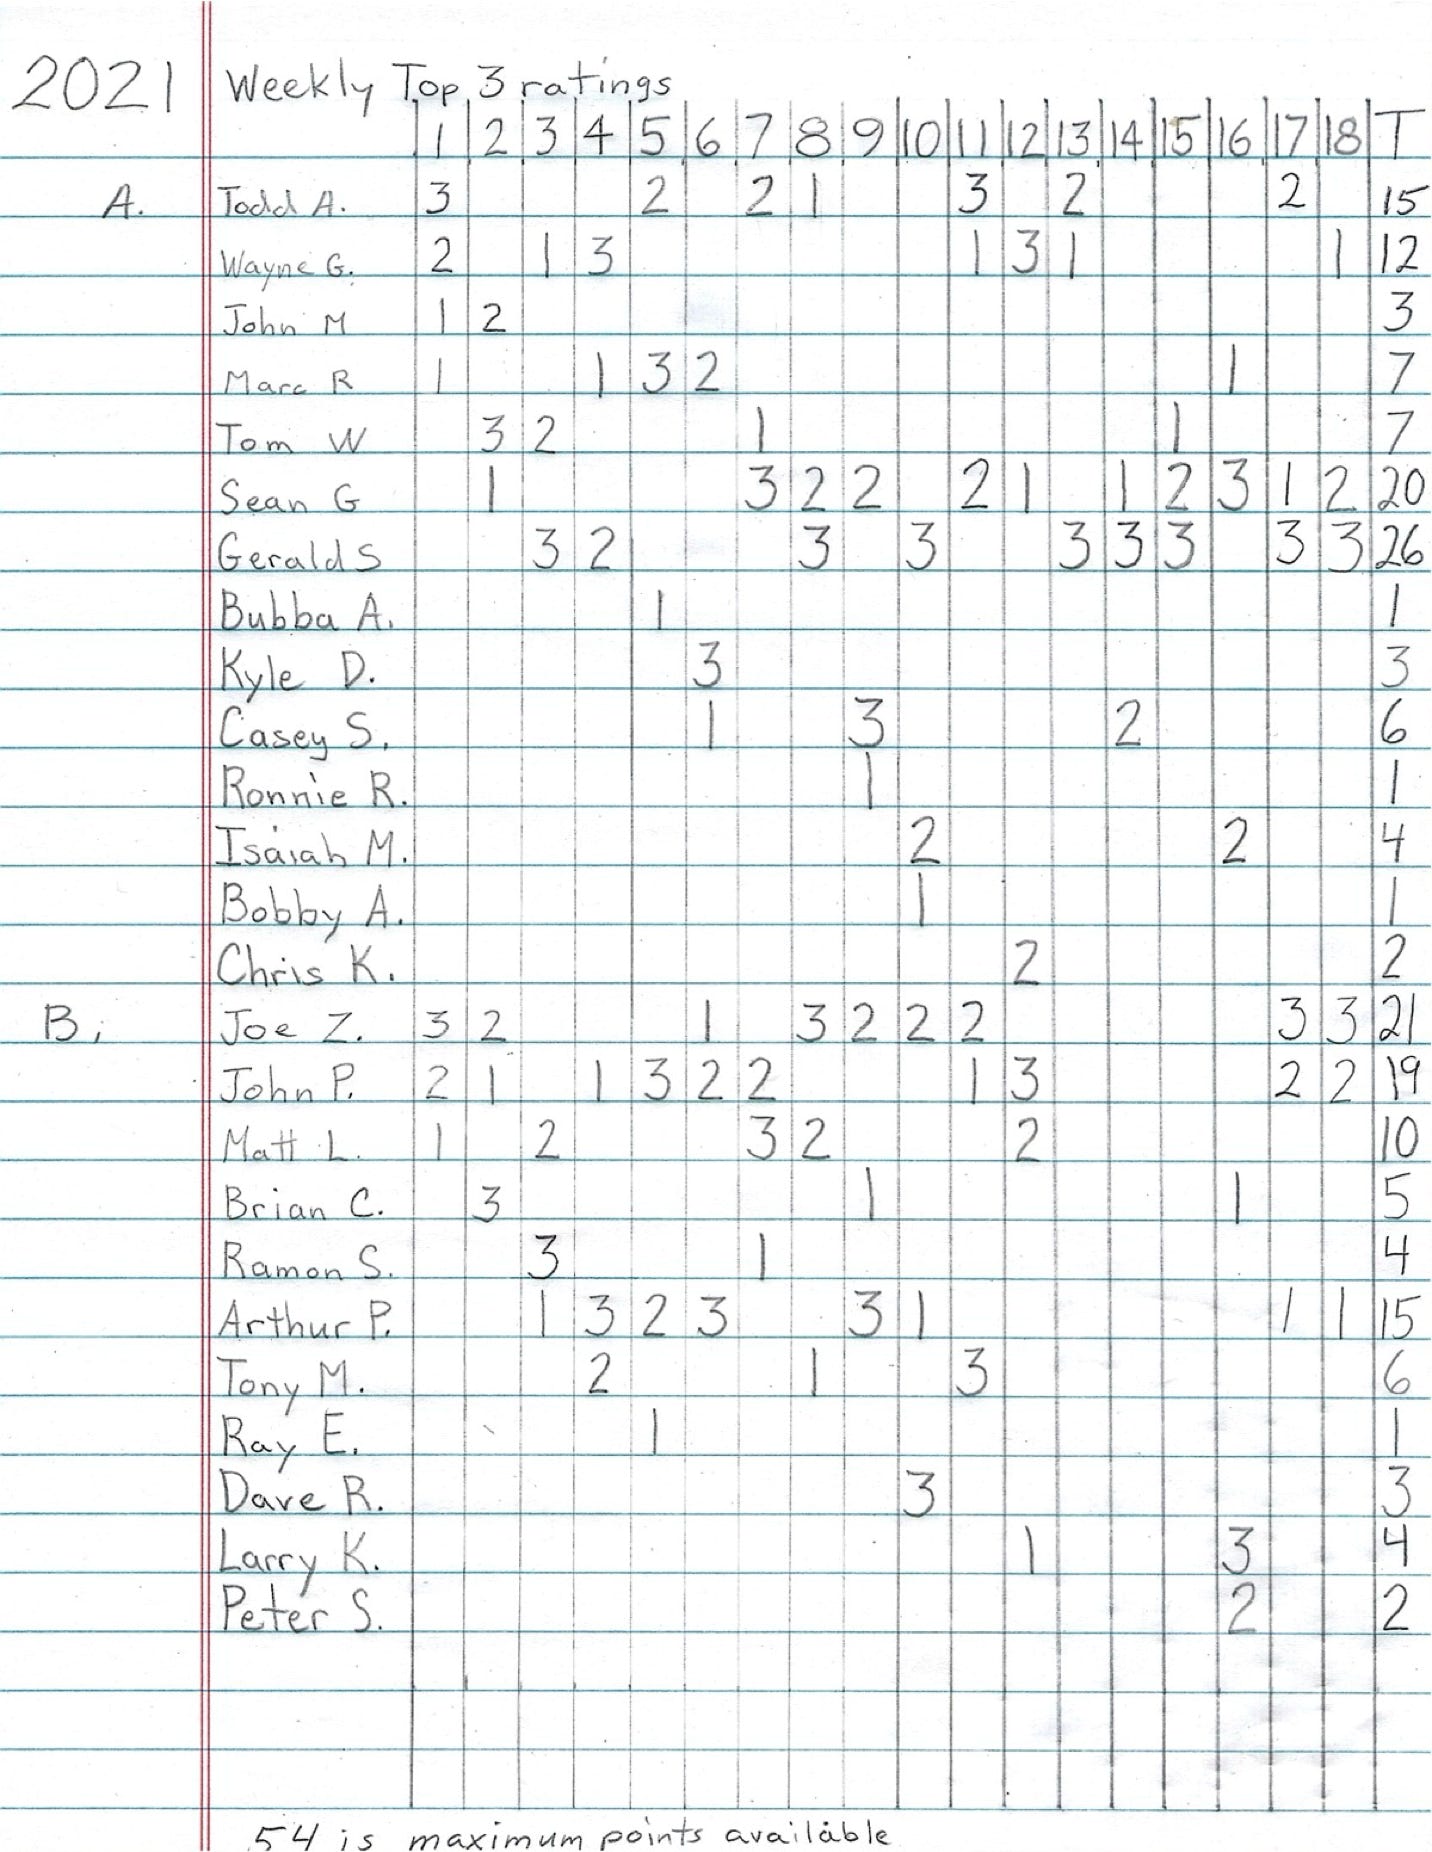 2021 Weekly Top 3 ratings
1 2 3 4 5 6 7 8 9 10 11 12 13 14 15 16 17 18 T
A. Todd A. 3 2 2 1 3 2 2 15
Wayne G. 2 1 3 1 3 1 1 12
John M 1 2 3
Marc R 1 1 3 2 1 7
Tom W 3 2 1 1 7
Sean G 1 3 2 2 2 1 1 2 3 1 2 20
Gerald S 3 2 3 3 3 3 3 3 3 26
Bubba A. 1 1
Kyle D. 3 3
Casey S. 1 3 2 6
Ronnie R. 1 1
Isaiah M. 2 2 4
Bobby A. 1 1
Chris K. 2 2
B. Joe Z. 3 2 1 3 2 2 2 3 3 21
John P. 2 1 1 3 2 2 1 3 2 2 19
Matt L. 1 2 3 2 2 10
Brian C. 3 1 1 5
Ramon S. 3 1 4
Arthur P. 1 3 2 3 3 1 1 1 15
Tony M. 2 1 3 6
Ray E. 1 1
Dave R. 3 3
Larry K. 1 3 4
Peter S. 2 2
54 is maximum points available